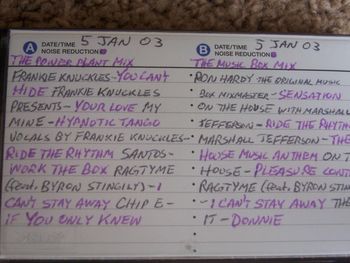 A DATE/TIME 5 JAN 03
NOISE REDUCTION
THE POWER PLANT MIX
FRANKIE KNUCKLES-YOU CAN'T
HIDE FRANKIE KNUCKLES
PRESENTS-YOUR LOVE MY
MINE-HYPNOTIC TANGO
VOCALS BY FRANKIE KNUCKLES-
RIDE THE RHYTHM SANTOS-
WORK THE BOX RAGTYME
(feat. BYRON STINGILY)-I
CAN'T STAY AWAY CHIP E-
IF YOU ONLY KNEW
B DATE/TIME 5 JAN 03
NOISE REDUCTION
THE MUSIC BOX MIX
RON HARDY THE ORIGINAL MUSIC
BOX MIXMASTER-SENSATION
ON THE HOUSE WITH MARSHALL
JEFFERSON-RIDE THE RHYTH
MARSHALL JEFFERSON-THE
HOUSE MUSIC ANTHEM ON T
HOUSE-PLEASURE CONT
RAGTYME (feat. BYRON STIN
-I CAN'T STAY AWAY THE
IT-DONNIE